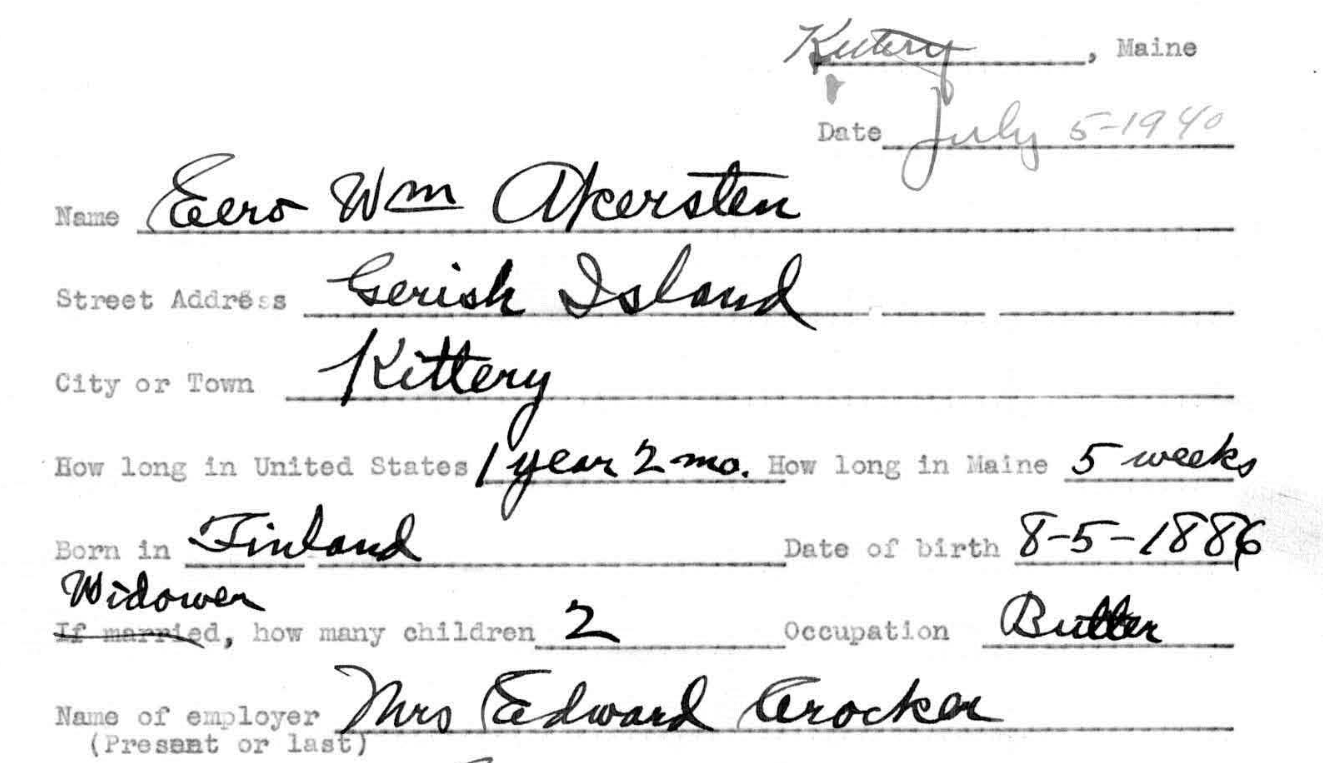 Kittery, Maine
Date July 5-1940
Name Eero Wm Akersten
Street Address Gerish Island
City or Town Kittery
How long in United States 1 year 2 mo. How long in Maine 5 weeks
Born in Finland Date of birth 8-5-1886
Widower
If married, how many children 2 Occupation Butler
Name of employer Mrs Edward Crocker
(Present or last)